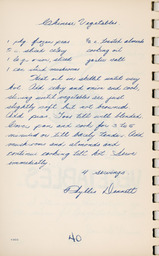 Chinese Vegetables
1 pkg. frozen peas ½ c toasted almonds
2 c sliced celery cooking oil
1 lg. onion, sliced garlic salt
1 can sliced mushrooms
Heat oil in skillet until very
hot. Add celery and onion and cook,
stirring until vegetables are just
slightly soft but not browned.
Add peas. Toss till well blended.
Cover pan and cook for 2 to 3
minutes or till barely tender. Add
mushrooms and almonds and
continue cooking till hot. Serve
immediately.
4 servings
Phyllis
40